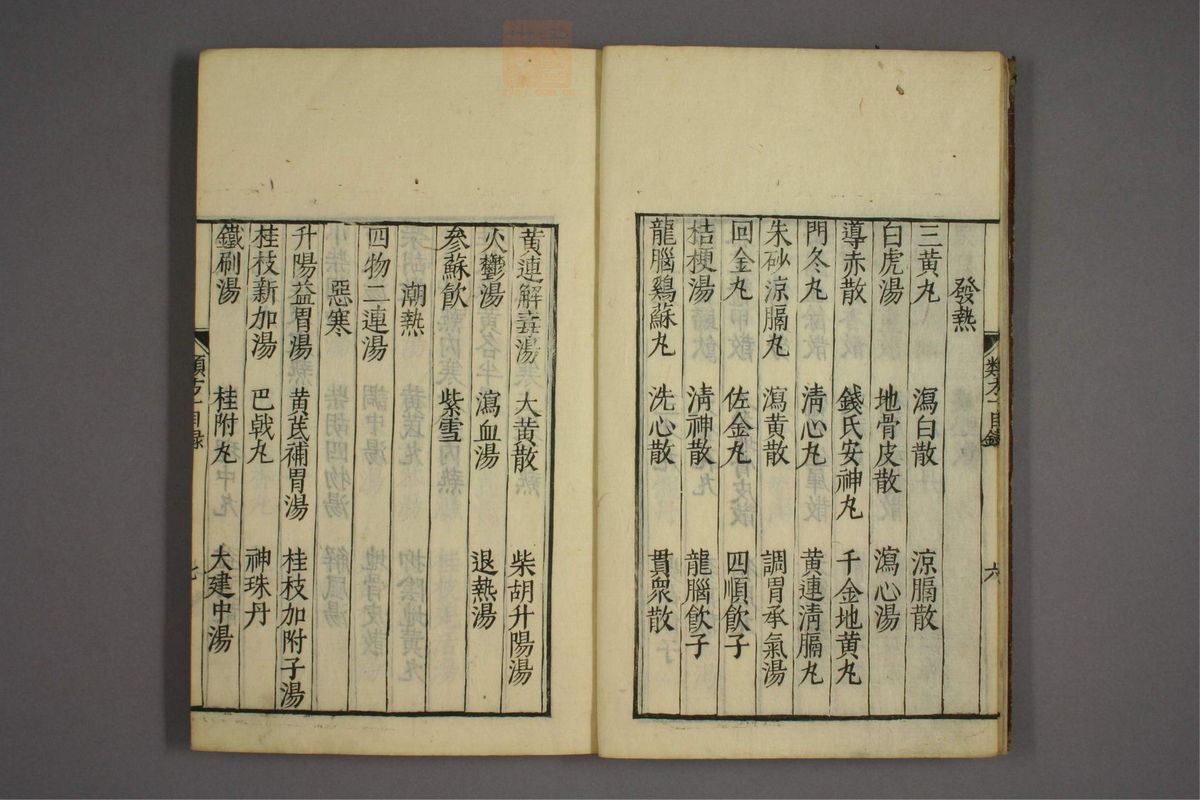 發熱
三黄丸　瀉白散　涼膈散
白虎湯　地骨皮散　瀉心湯
導赤散　錢氏安神丸　千金地黄丸
門冬丸　清心丸　黄連清膈丸
朱砂涼膈丸　瀉黄散　調胃承氣湯
回金丸　佐金丸　四順飲子
桔梗湯　清神散　龍腦飲子
龍腦鷄蘇丸　洗心散　貫衆散
類方一目錄　六
黄連解毒湯　大黄散　柴胡升陽湯
火鬱湯　瀉血湯　退熱湯
參蘇飲　紫雪
潮熱
四物二連湯
惡寒
升陽益胃湯　黄芪補胃湯　桂枝加附子湯
桂枝新加湯　巴戟丸　神珠丹
鐵刷湯　桂附丸　大建中湯
類方一目録　七